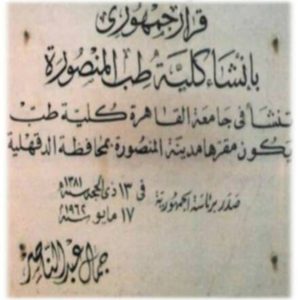 قرار جمهورى
بإنشاء كلية طب المنصورة
تنشأ فى جامعة القاهرة كلية طب
يكون مقرها مدينة المنصورة بمحافظة الدقهلية
صدر برئاسة الجمهورية فى ١٣ ذى الحجة سنة ١٣٨١
١٧ مايو سنة ١٩٦٢
جمال عبد الناصر